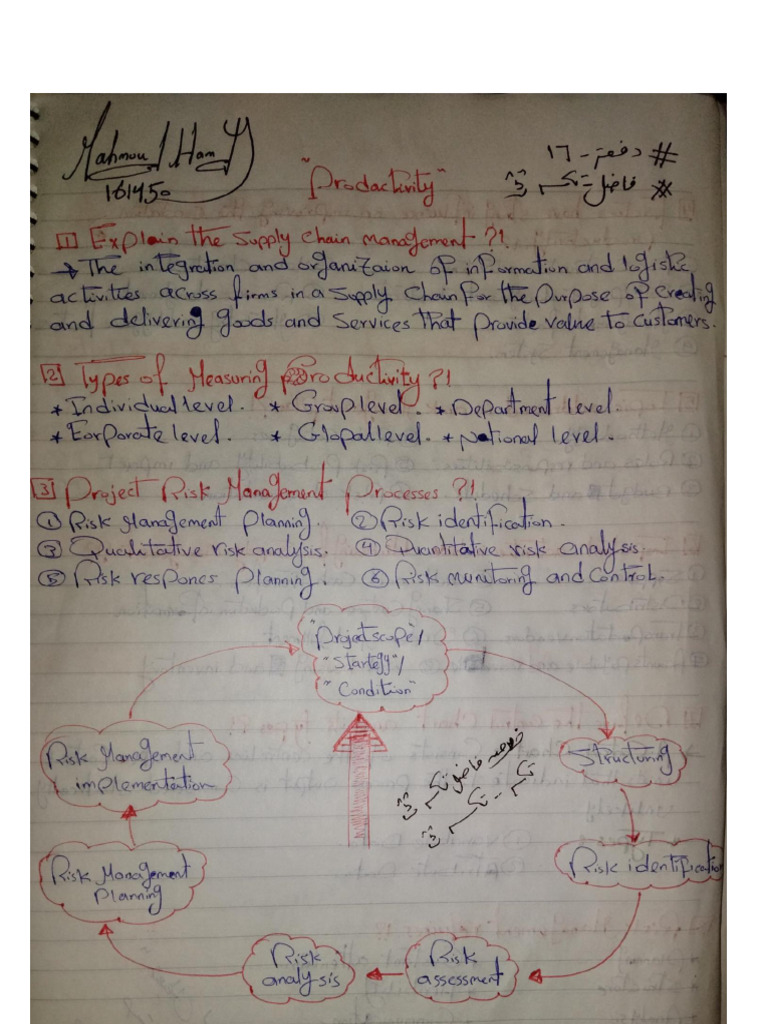 Mahmoud Hamdy
161450
# دفعتر - ١٦
"Prodactivity"
[1] Explain the Supply chain management ?!
→ The integration and organizaion of information and logistic
activities across firms in a Supply Chain for the Purpose of Creating
and delivering goods and Services That provide value to Customers.
[2] Types of Measuring Productivity ?!
* Individual level. * Group level. * Department level.
* Eorporate level. * Glopal level. * National level.
[3] Project Risk Management Processes ?!
① Risk Management Planning. ② Risk identification.
③ Qualitative risk analysis. ④ Quantitative risk analysis.
⑤ Risk respones Planning. ⑥ Risk munitoring and Control.
"Project scope"/
"Startegy"/
"Condition"
Structuring
Risk identification
Risk
assessment
Risk
analysis
Risk Management
Planning
Risk Management
implementation